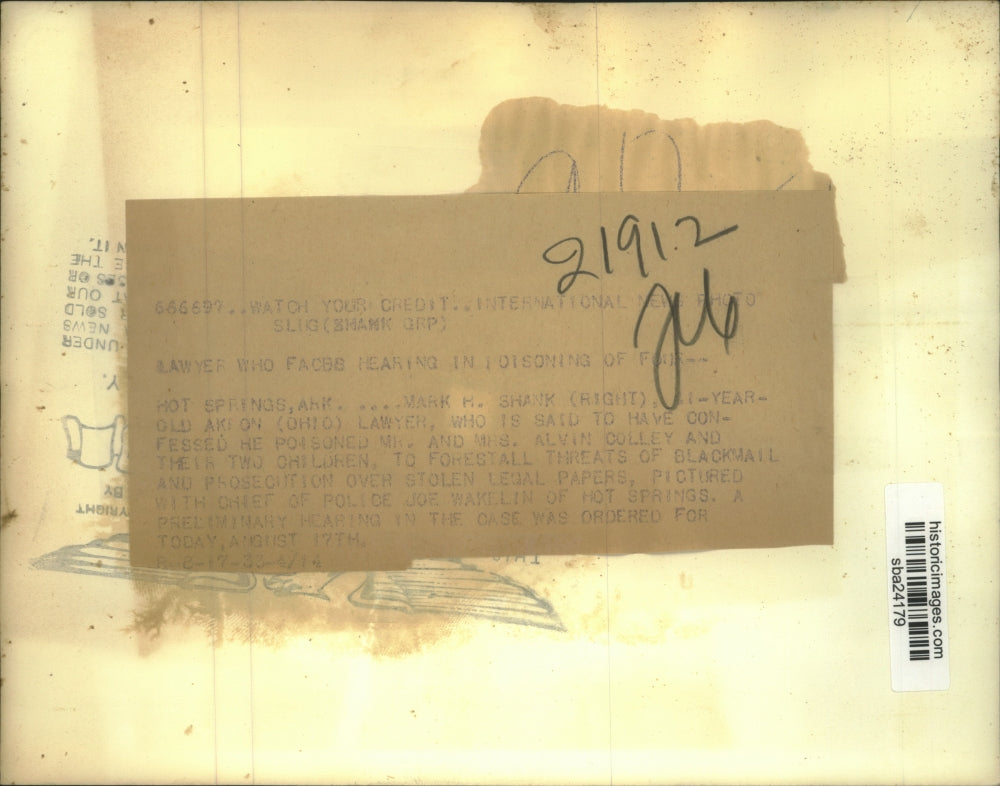 21912
666697..WATCH YOUR CREDIT..INTERNATIONAL NEWS PHOTO
SLUG(SHANK GRP)
LAWYER WHO FACES HEARING IN POISONING OF FOUR--
HOT SPRINGS,ARK. ....MARK H. SHANK (RIGHT), 41-YEAR-
OLD AKRON (OHIO) LAWYER, WHO IS SAID TO HAVE CON-
FESSED HE POISONED MR. AND MRS. ALVIN COLLEY AND
THEIR TWO CHILDREN, TO FORESTALL THREATS OF BLACKMAIL
AND PROSECUTION OVER STOLEN LEGAL PAPERS, PICTURED
WITH CHIEF OF POLICE JOE WAKELIN OF HOT SPRINGS. A
PRELIMINARY HEARING IN THE CASE WAS ORDERED FOR
TODAY,AUGUST 17TH.
historicimages.com
sba24179
YRIGHT
BY
Y.
UNDER
NEWS
SOLD
T OUR
SES OR
E THE
N IT.